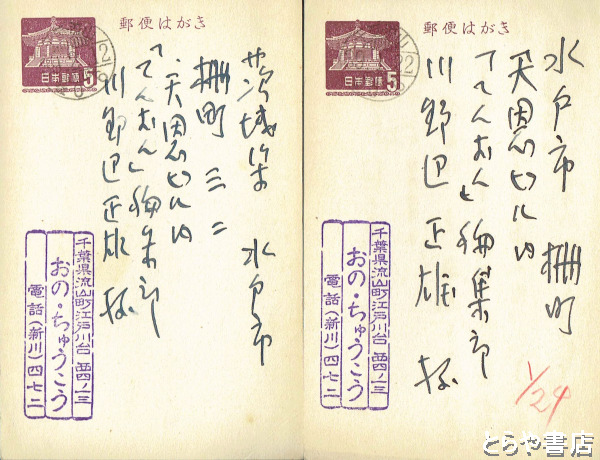 郵便はがき
日本郵便
5
茨城県 水戸市
柵町 三ノ二
天恩ビル内
「てんおん」編集部
川野辺正雄様
千葉県流山町江戸川台西四ノ三
おの・ちゅうこう
電話(新川)四七二
郵便はがき
日本郵便
5
22
水戸市 柵町
天恩ビル内
「てんおん」編集部
川野辺正雄様
千葉県流山町江戸川台西四ノ三
おの・ちゅうこう
電話(新川)四七二
1/24
とらや書店